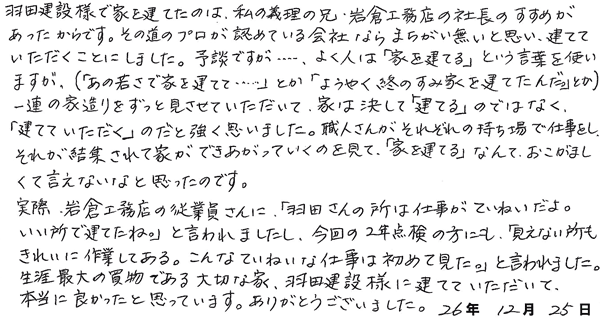 羽田建設様で家を建てたのは、私の義理の兄・岩倉工務店の社長のすすめが
あったからです。その道のプロが認めている会社ならまちがい無いと思い、建てて
いただくことにしました。予談ですが……、よく人は「家を建てる」という言葉を使い
ますが、(「あの若さで家を建てて……」とか「ようやく終のすみ家を建てたんだ」とか)
一連の家造りをずっと見させていただいて、家は決して「建てる」のではなく、
「建てていただく」のだと強く思いました。職人さんがそれぞれの持ち場で仕事をし、
それが結集されて家ができあがっていくのを見て、「家を建てる」なんて、おこがまし
くて言えないなと思ったのです。
実際、岩倉工務店の従業員さんに、「羽田さんの所は仕事がていねいだよ。
いい所で建てたね。」と言われましたし、今回の2年点検の方にも、「見えない所も
きれいに作業してある。こんなていねいな仕事は初めて見た。」と言われました。
生涯最大の買物である大切な家、羽田建設様に建てていただいて、
本当に良かったと思っています。ありがとうございました。 26年 12月 25日